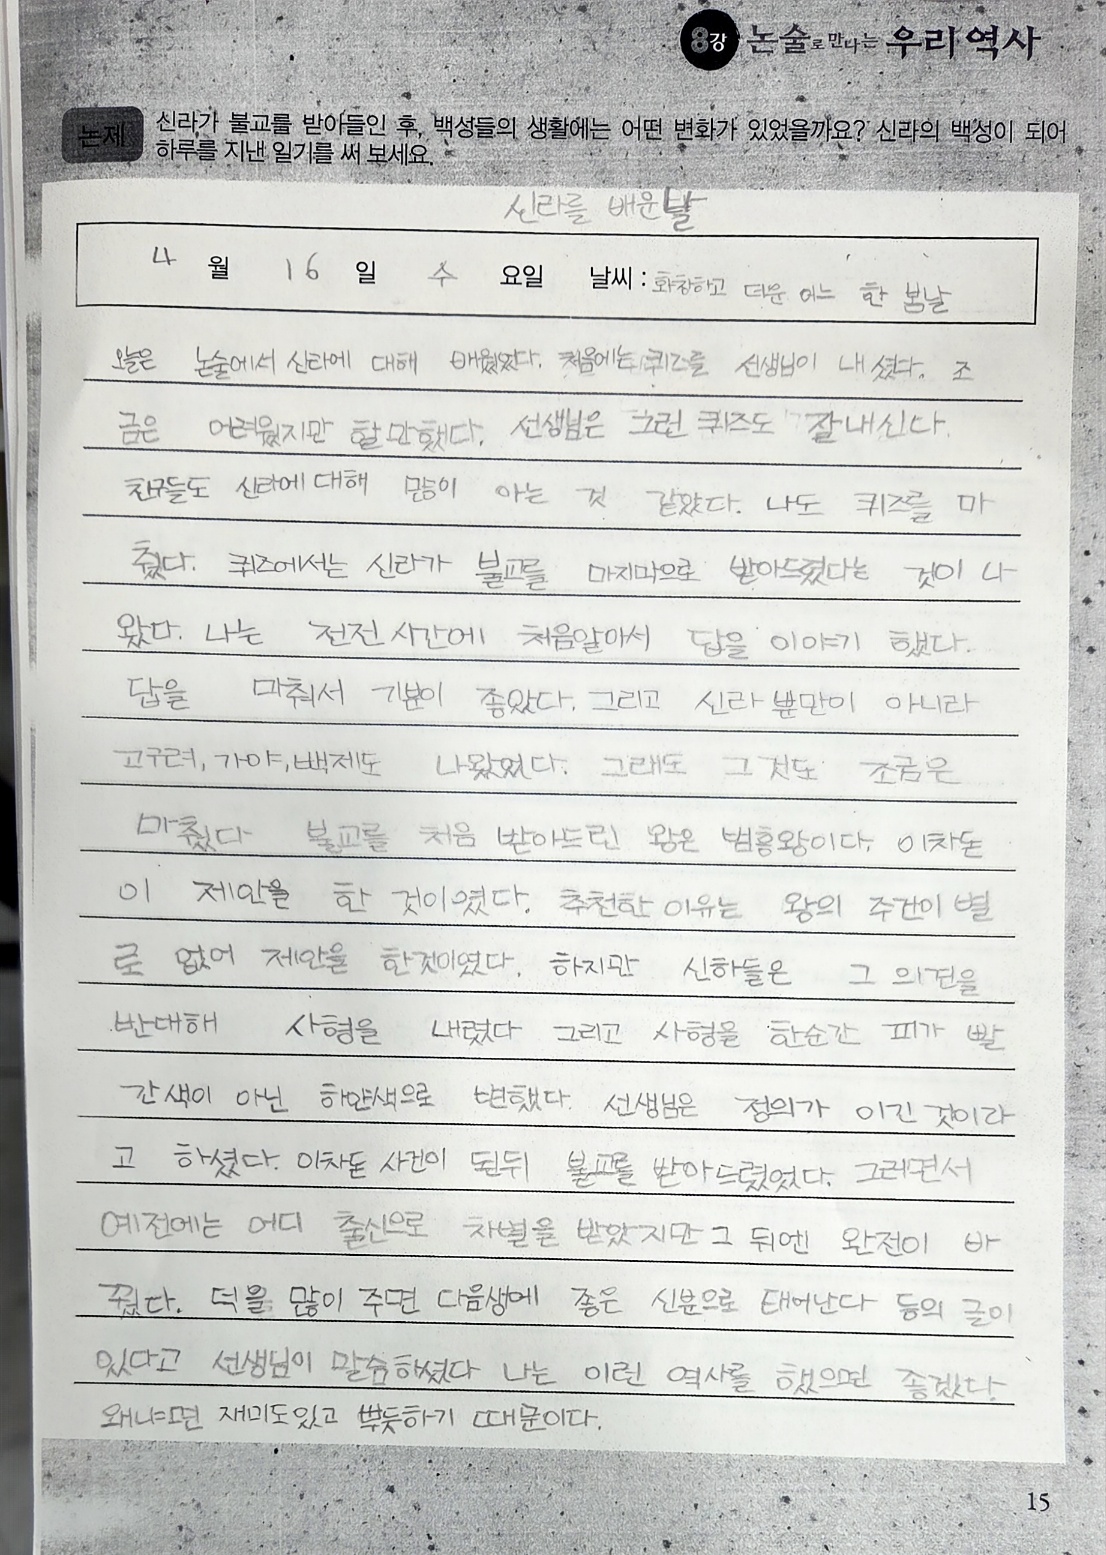 8강 논술로 만나는 우리역사
논제 신라가 불교를 받아들인 후, 백성들의 생활에는 어떤 변화가 있었을까요? 신라의 백성이 되어
하루를 지낸 일기를 써 보세요.
신라를 배운날
4 월 16 일 수 요일 날씨 : 화창하고 더운 어느 한 봄날
오늘은 논술에서 신라에 대해 배웠었다. 처음에는 퀴즈를 선생님이 내셨다. 조
금은 어려웠지만 할만했다. 선생님은 그런 퀴즈도 잘내신다.
친구들도 신라에 대해 많이 아는 것 같았다. 나도 퀴즈를 마
췄다. 퀴즈에서는 신라가 불교를 마지막으로 받아드렸다는 것이 나
왔다. 나는 전전 시간에 처음알아서 답을 이야기 했다.
답을 마춰서 기분이 좋았다. 그리고 신라 뿐만이 아니라
고구려, 가야, 백제도 나왔었다. 그래도 그것도 조금은
마췄다 불교를 처음 받아드린 왕은 법흥왕이다. 이차돈
이 제안을 한 것이였다. 추천한 이유는 왕의 주건이 별
로 없어 제안을 한것이였다. 하지만 신하들은 그 의견을
반대해 사형을 내렸다 그리고 사형을 한순간 피가 빨
간색이 아닌 하얀색으로 변했다. 선생님은 정의가 이긴 것이라
고 하셨다. 이차돈 사건이 된뒤 불교를 받아드렸었다. 그러면서
예전에는 어디 출신으로 차별을 받았지만 그 뒤엔 완전이 바
꿨다. 덕을 많이 주면 다음생에 좋은 신분으로 태어난다 등의 글이
있다고 선생님이 말씀하셨다 나는 이런 역사를 했으면 좋겠다.
왜냐면 재미도있고 뿌듯하기 때문이다.
15